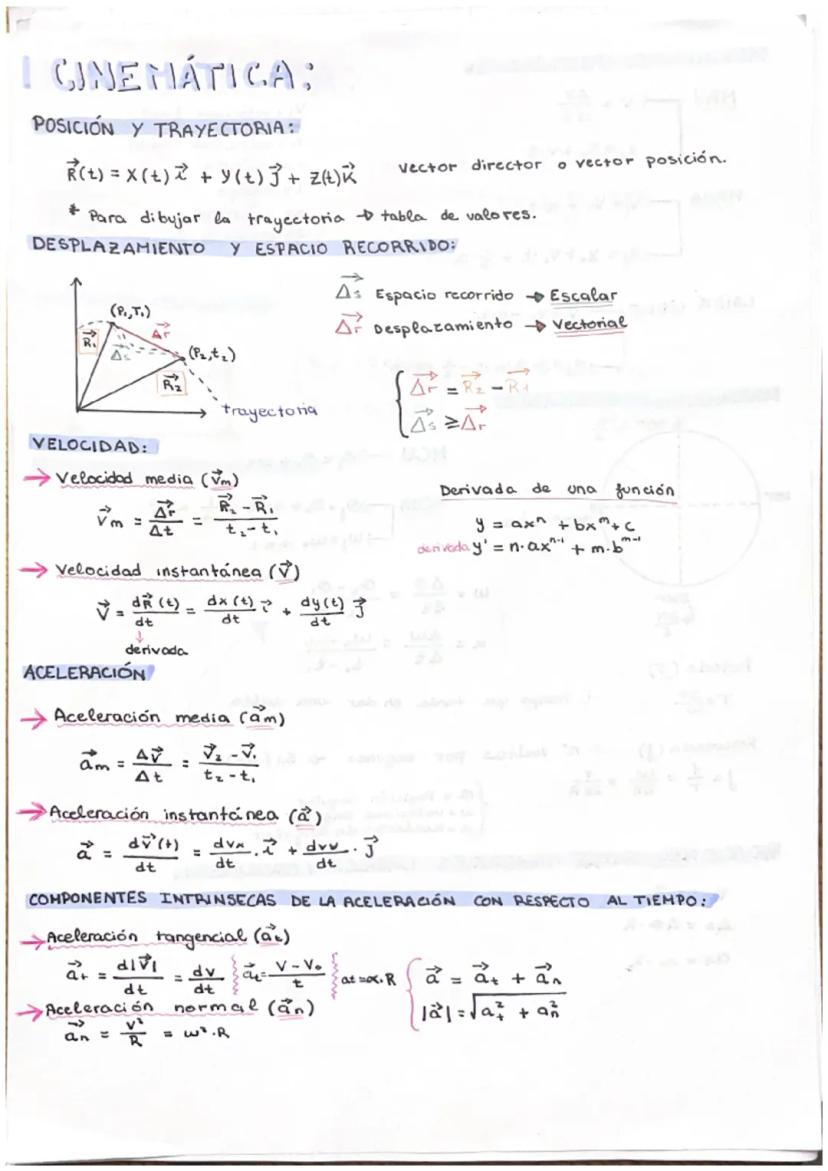 CINEMÁTICA:
POSICIÓN Y TRAYECTORIA:
R⃗(t) = X(t) i⃗ + Y(t) j⃗ + Z(t) K⃗ vector director o vector posición.
* Para dibujar la trayectoria → tabla de valores.
DESPLAZAMIENTO Y ESPACIO RECORRIDO:
Δs⃗ Espacio recorrido → Escalar
Δr⃗ Desplazamiento → Vectorial
(P₁,T₁)
R⃗₁
Δr⃗
Δs⃗
(P₂,t₂)
R⃗₂
trayectoria
Δr⃗ = R⃗₂ - R⃗₁
Δs⃗ ≥ Δr⃗
VELOCIDAD:
→ Velocidad media (v⃗m)
V⃗m = Δr⃗/Δt = (R⃗₂ - R⃗₁)/(t₂ - t₁)
Derivada de una función
y = axⁿ + bxᵐ + c
derivada y' = n·axⁿ⁻¹ + m·bᵐ⁻¹
→ Velocidad instantánea (V⃗)
V⃗ = dR⃗(t)/dt = dx(t)/dt i⃗ + dy(t)/dt j⃗
↓
derivada
ACELERACIÓN
→ Aceleración media (a⃗m)
a⃗m = ΔV⃗/Δt = (V⃗₂ - V⃗₁)/(t₂ - t₁)
→ Aceleración instantánea (a⃗)
a⃗ = dv⃗(t)/dt = dvx/dt · i⃗ + dvy/dt · j⃗
COMPONENTES INTRINSECAS DE LA ACELERACIÓN CON RESPECTO AL TIEMPO:
→ Aceleración tangencial (a⃗t)
a⃗t = d|V⃗|/dt = dv/dt a⃗t = (V - V₀)/t at = α·R
a⃗ = a⃗t + a⃗n
|a⃗| = √(at² + an²)
→ Aceleración normal (a⃗n)
a⃗n = v²/R = ω²·R